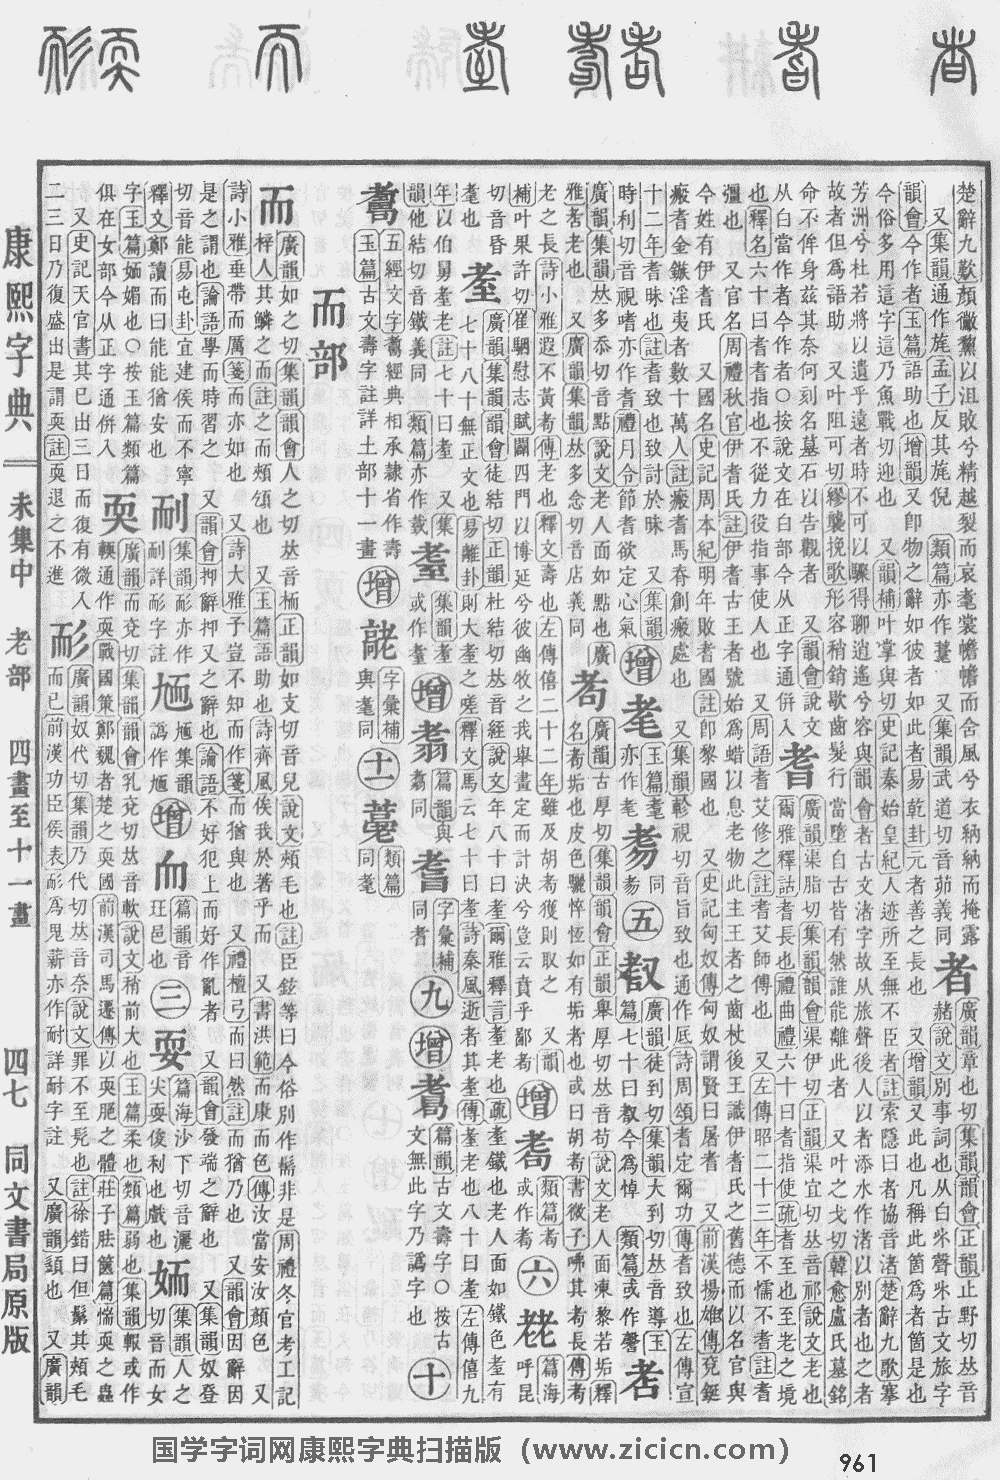 康熙字典 未集中 老部 四畫至十一畫 四七 同文書局原版
楚辭九歎顏黴黧以沮敗兮精越裂而哀耄裳襜襜而含風兮衣納納而掩露 者 廣韻章也切集韻韻會正韻止野切𠀤音
又集韻通作旄孟子反其旄倪 類篇亦作薹 又集韻武道切音茆義同 赭說文別事詞也从白𣥐聲𣥐古文旅字
韻會今作者玉篇語助也增韻又卽物之辭如彼者如此者易乾卦元者善之長也 又增韻又此也凡稱此箇爲者箇是也
今俗多用這字這乃魚戰切迎也 又韻補叶掌與切史記秦始皇紀人迹所至無不臣者註索隱曰者協音渚楚辭九歌搴
芳洲兮杜若將以遺乎遠者時不可以驟得聊逍遙兮容與韻會者古文渚字故从旅聲後人以者添水作渚以別者也之者
故者但爲語助 又叶阻可切繆襲挽歌形容稍銷歇齒髮行當墮自古皆有然誰能離此者 又叶之戈切韓愈盧氏墓銘
命不俾身茲其奈何刻名墓石以告觀者 韻會說文
从白當作者今作者○按說文在白部今从正字通併入
耆 廣韻渠脂切集韻韻會渠伊切正韻渠宜切𠀤音祁說文老也
爾雅釋詁耆長也禮曲禮六十曰耆指使疏耆至也至老之境
也釋名六十曰耆耆指也不從力役指事使人也 又周語耆艾修之註耆艾師傅也 又左傳昭二十三年不懦不耆註耆
彊也 又官名周禮秋官伊耆氏註伊耆古王者號始爲蜡以息老物此主王者之齒杖後王識伊耆氏之舊德而以名官與
今姓有伊耆氏 又國名史記周本紀明年敗耆國註卽黎國也 又史記匈奴傳匈奴謂賢曰屠耆 又前漢揚雄傳兗鋋
瘢耆金鏃淫夷者數十萬人註瘢耆馬脊創瘢處也 又集韻軫視切音旨致也通作厎詩周頌耆定爾功傳耆致也左傳宣
十二年耆昧也註耆致也致討於昧 又集韻
時利切音視嗜亦作耆禮月令節耆欲定心氣
增 耂 玉篇耄亦作
五 廣韻徒到切集韻大到切𠀤音導玉篇七十曰 今爲悼 類篇或作
廣韻集韻𠀤多忝切音點說文老人面如點也廣
雅耇老也 又廣韻集韻𠀤多念切音店義同
耇 廣韻古厚切集韻韻會正韻舉厚切𠀤音苟說文老人面凍黎若垢釋
名耇垢也皮色驪悴恆如有垢者也或曰胡耇書微子咈其耇長傳耇
老之長長詩小雅遐不黃耇傳老也釋文壽也左傳僖二十二年雖及胡耇獲則取之 又韻
補叶果許切崔駰慰志賦闢四門以博延兮彼幽牧之我舉畫定而計決兮豈云賁乎鄙耇
增 類篇耇或作 六 篇海呼昆
切音昏耄也
耋 廣韻集韻韻會徒結切正韻杜結切𠀤音經說文年八十曰耋爾雅釋言耋老也疏耋鐵也老人面如鐵色耋有
七十八十無正文也易離卦則大耋之嗟釋文馬云七十曰耋詩秦風逝者其耋傳耋老也八十曰耋左傳僖九
年以伯舅耋老註七十曰耋 又集
韻他結切音鐵義同 類篇亦作
耊 集韻耋或作耊 增 耆 字彙補同耆
九 增 篇韻古文壽字○按古文無此字乃譌字也 十
玉篇古文壽字註詳土部十一畫
五經文字耉經典相承隸省作壽
增 字彙補與耄同 十一 薹 類篇同耄
而部
而 廣韻如之切集韻韻會人之切𠀤音栭正韻如支切音兒說文頰毛也註臣鉉等曰今俗別作髵非是周禮冬官考工記
梓人其鱗之而註之而頰頌也 又玉篇語助也詩齊風俟我於著乎而 又書洪範而康而色傳汝當安汝顏色 又
詩小雅垂帶而厲箋而亦如也 又詩大雅子豈不知而作箋而猶與也 又禮檀弓而曰然註而猶乃也 又韻會因辭因
是之謂也論語學而時習之 又韻會抑辭抑又之辭也論語不好犯上而好作亂者 又韻會發端之辭也 又集韻奴登
切音能易屯卦宜建侯而不寧
釋文鄭讀而曰能能猶安也
耐 集韻耏亦作耐詳耏字註 増 三 耍 篇海沙下切音灑尖耍俊利也戲也
篇韻音
耎 廣韻而兗切集韻韻會乳兗切𠀤音軟說文稍前大也玉篇柔也類篇弱也集韻輭或作
輭通作耎戰國策鄭魏者楚之耎國前漢司馬遷傳以耎脃之體莊子胠篋篇惴耎之蟲
又史記天官書其已出三日而復有微入
二三日乃復盛出是謂耎註耎退之不進
耏 廣韻奴代切集韻乃代切𠀤音奈說文罪不至髡也註徐鍇曰但鬄其頰毛
而已前漢功臣侯表耏爲鬼薪亦作耐詳耐字註 又廣韻頦也 又廣韻
国学字词网康熙字典扫描版(www.zicicn.com)
961